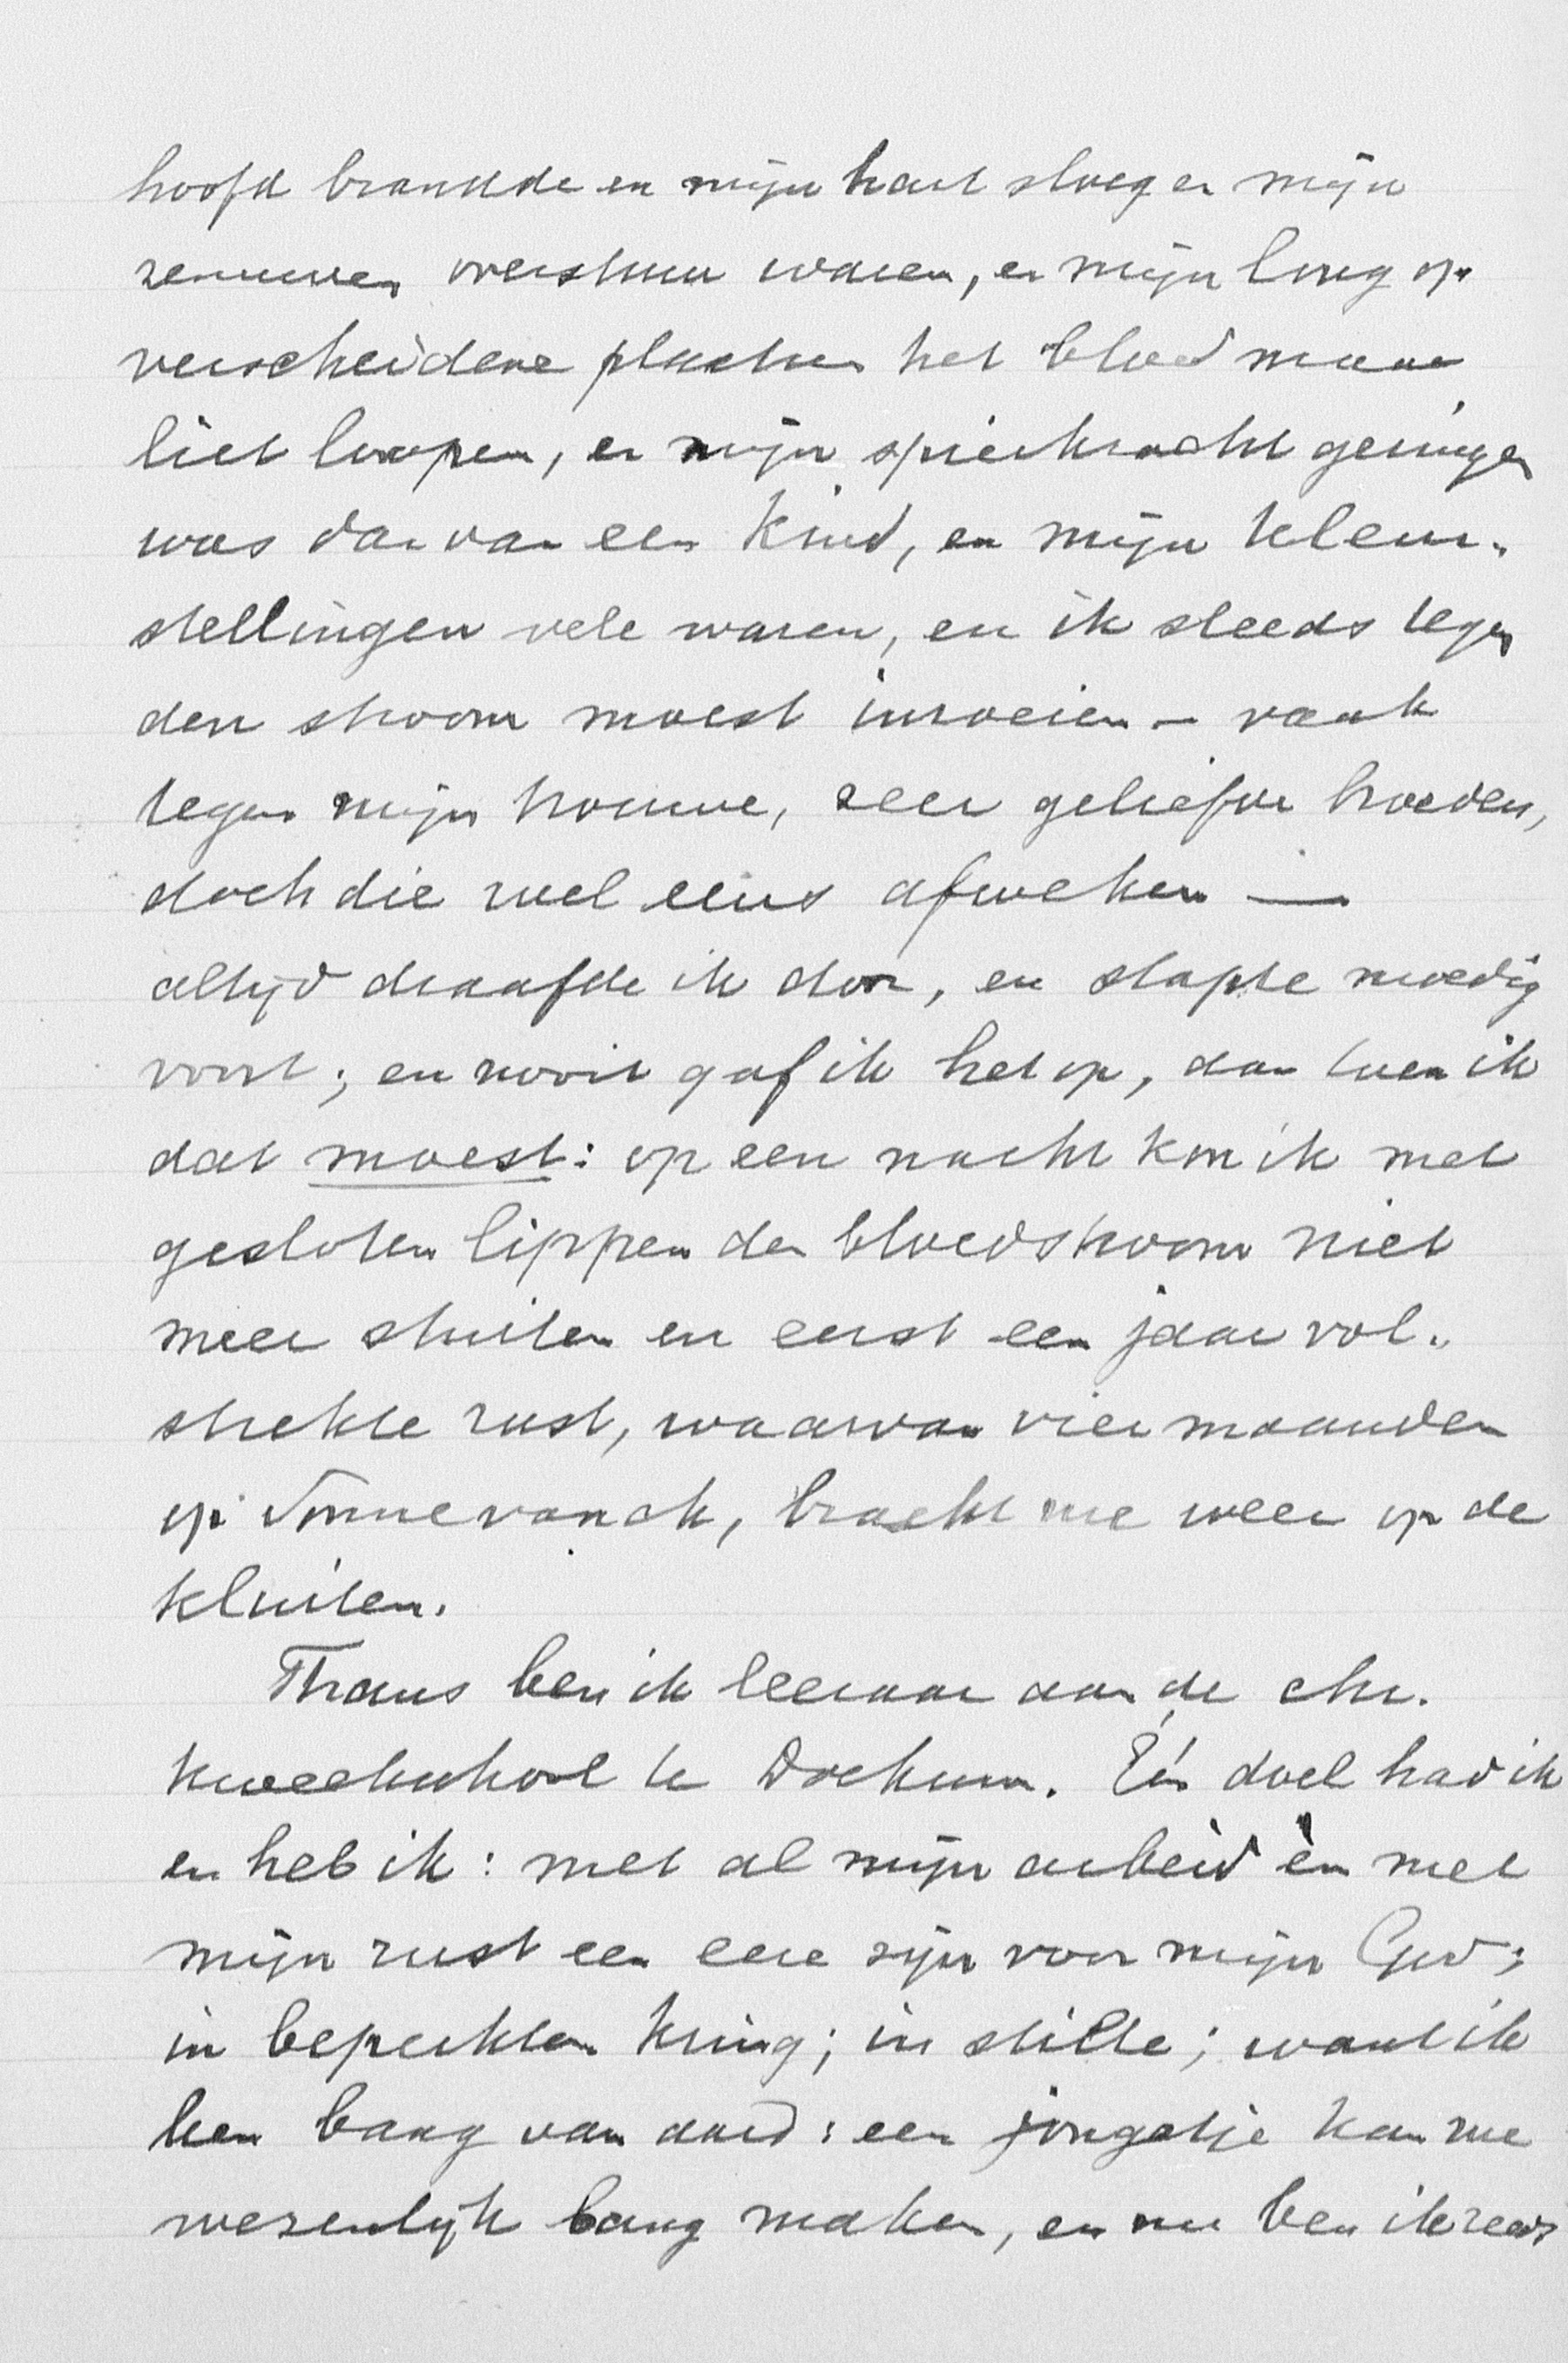 hoofd brandde en mijn hart sloeg en mijn
zenuwen overstuur waren, en mijn long op
verscheidene plaatsen het bloed maar
liet loopen, en mijn spierkracht geringer
was dan van een kind, en mijn teleur-
stellingen vele waren, en ik steeds tegen
den stroom moest inroeien – vaak
tegen mijn trouwe, zeer geliefde broeders,
doch die wel eens afweken —
altijd draafde ik door, en stapte moedig
voort; en nooit gaf ik het op, dan toen ik
dat moest: op een nacht kon ik met
gesloten lippen den bloedstroom niet
meer stuiten en eerst een jaar vol-
strekte rust, waarvan vier maanden
op Sonnevanck, bracht me weer op de
kluiten.
Thans ben ik leeraar aan de chr.
kweekschool te Dockum. Eén doel had ik
en heb ik: met al mijn arbeid èn met
mijn rust een eere zijn voor mijn God;
in beperkten kring; in stilte; want ik
ben bang van aard: een jongetje kan me
wezenlijk bang maken, en nu ben ik reeds